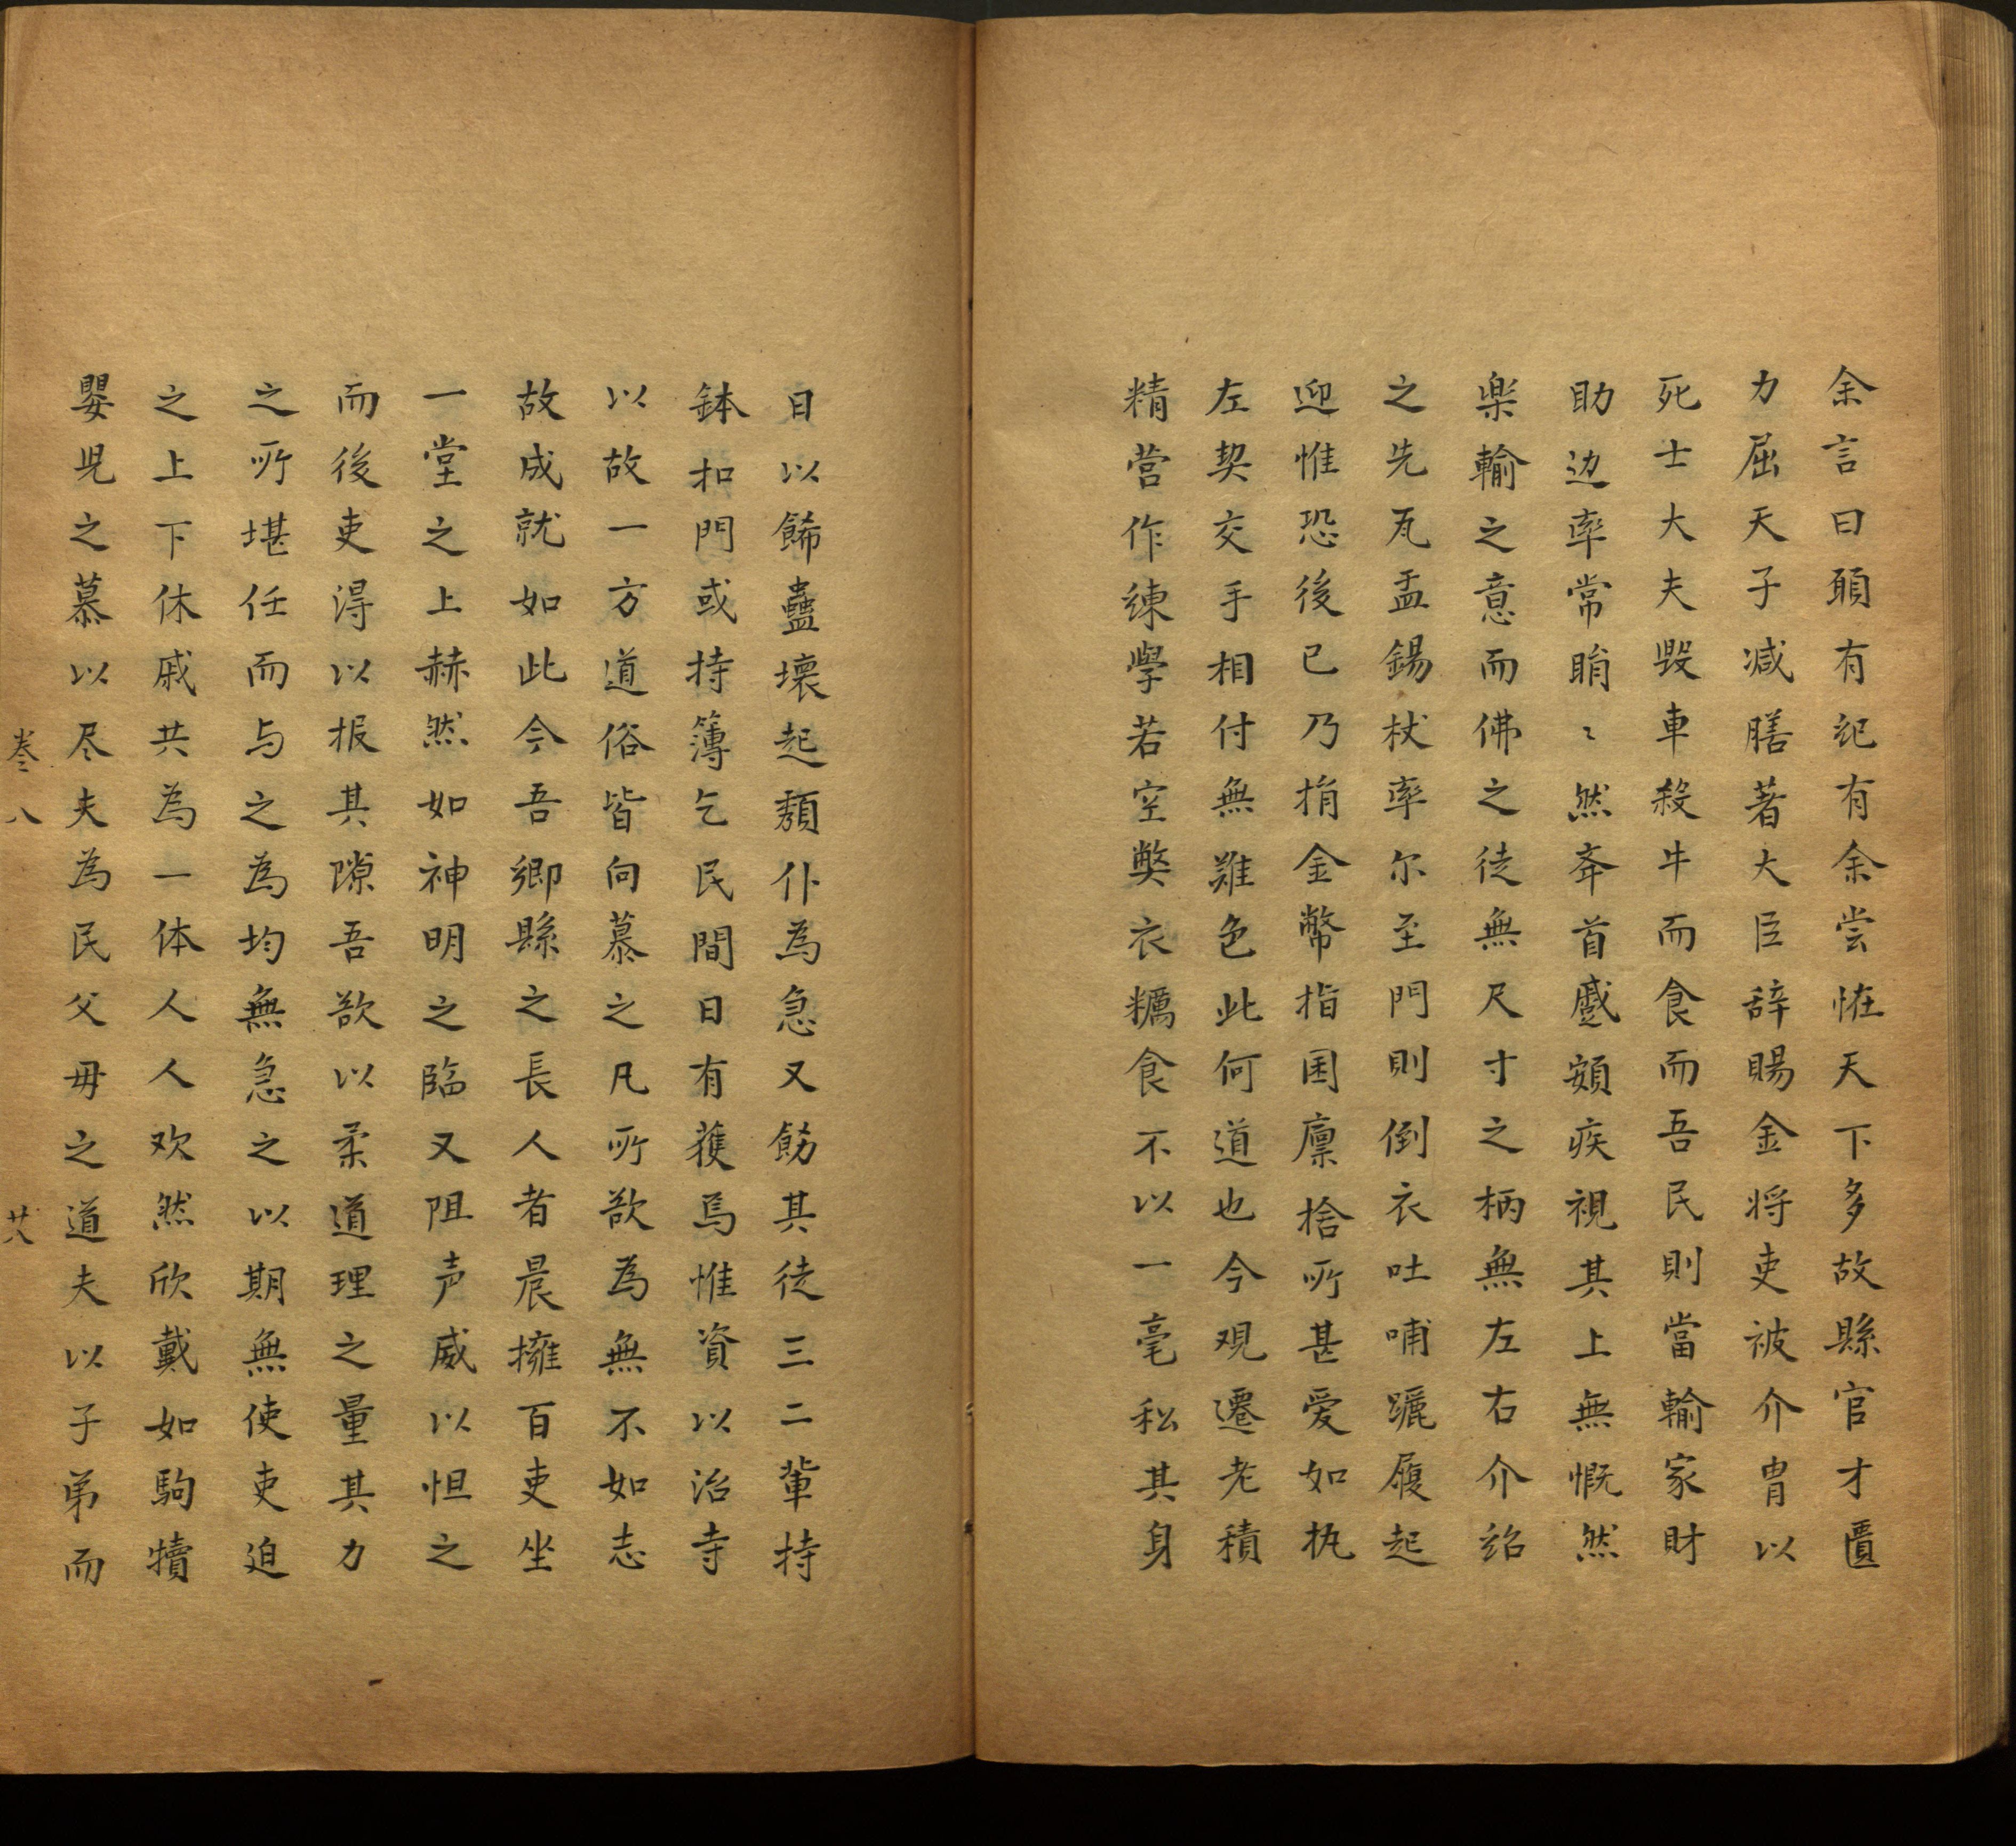 余言曰頋有記有余尝恠天下多故縣官才匱
力屈天子减膳著大臣辞賜金将吏被介胄以
死士大夫毁車殺牛而食而吾民則當輸家財
助边率常睊〻然夲首慼頞疾視其上無慨然
楽輸之意而佛之徒無尺寸之柄無左右介紹
之先瓦盂錫杖率尔至門則倒衣吐哺躧履起
迎惟恐後已乃捐金幣指囷廪捨所甚爱如执
左契交手相付無難色此何道也今观遷老積
精营作练學若空獘衣糲食不以一毫私其身
日以餙蠱壞起頽仆為急又餝其徒三二輩持
鉢扣門或持簿乞民間日有獲焉惟資以治寺
以故一方道俗皆向慕之凡所欲為無不如志
故成就如此今吾鄉縣之長人者晨擁百吏坐
一堂之上赫然如神明之臨又阻声威以怛之
而後吏得以报其隙吾欲以柔道理之量其力
之所堪任而与之為均無急之以期無使吏迫
之上下休戚共為一体人人欢然欣戴如駒犢
嬰児之慕以尽夫為民父毋之道夫以子弟而
卷八 廿八